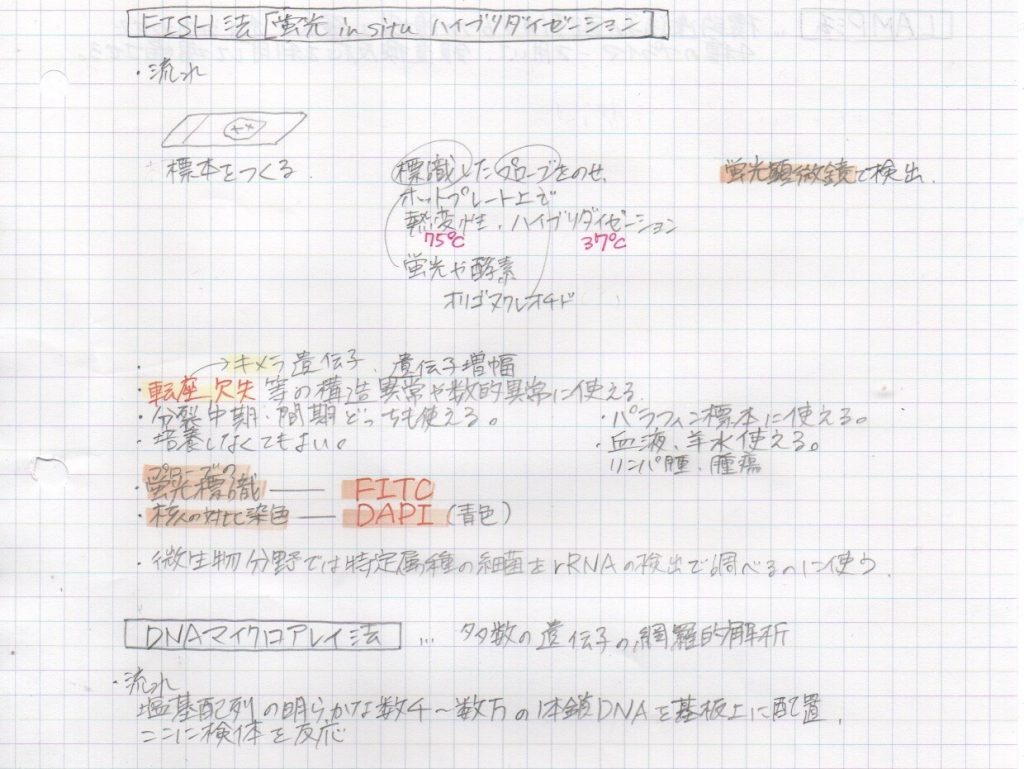 FISH法[蛍光 in situ ハイブリダイゼーション]
・流れ
標本をつくる.
標識したプローブをのせ、
ホットプレート上で
熱変性、ハイブリダイゼーション
75℃ 37℃
蛍光や酵素
オリゴヌクレオチド
蛍光顕微鏡で検出.
・ →キメラ遺伝子、遺伝子増幅
・転座 欠失 等の構造異常や数的異常に使える
・分裂中期・間期どっちも使える。
・培養しなくてもよい。
・パラフィン標本に使える。
・血液、羊水使える。
リンパ腫、腫瘍
プローブの
・蛍光標識 ― FITC
・核の対比染色 ― DAPI (青色)
・微生物分野では特定属種の細菌をrRNAの検出で調べるのに使う.
DNAマイクロアレイ法 … 多数の遺伝子の網羅的解析
・流れ
塩基配列の明らかな数千～数万の1本鎖DNAを基板上に配置.
ここに検体を反応